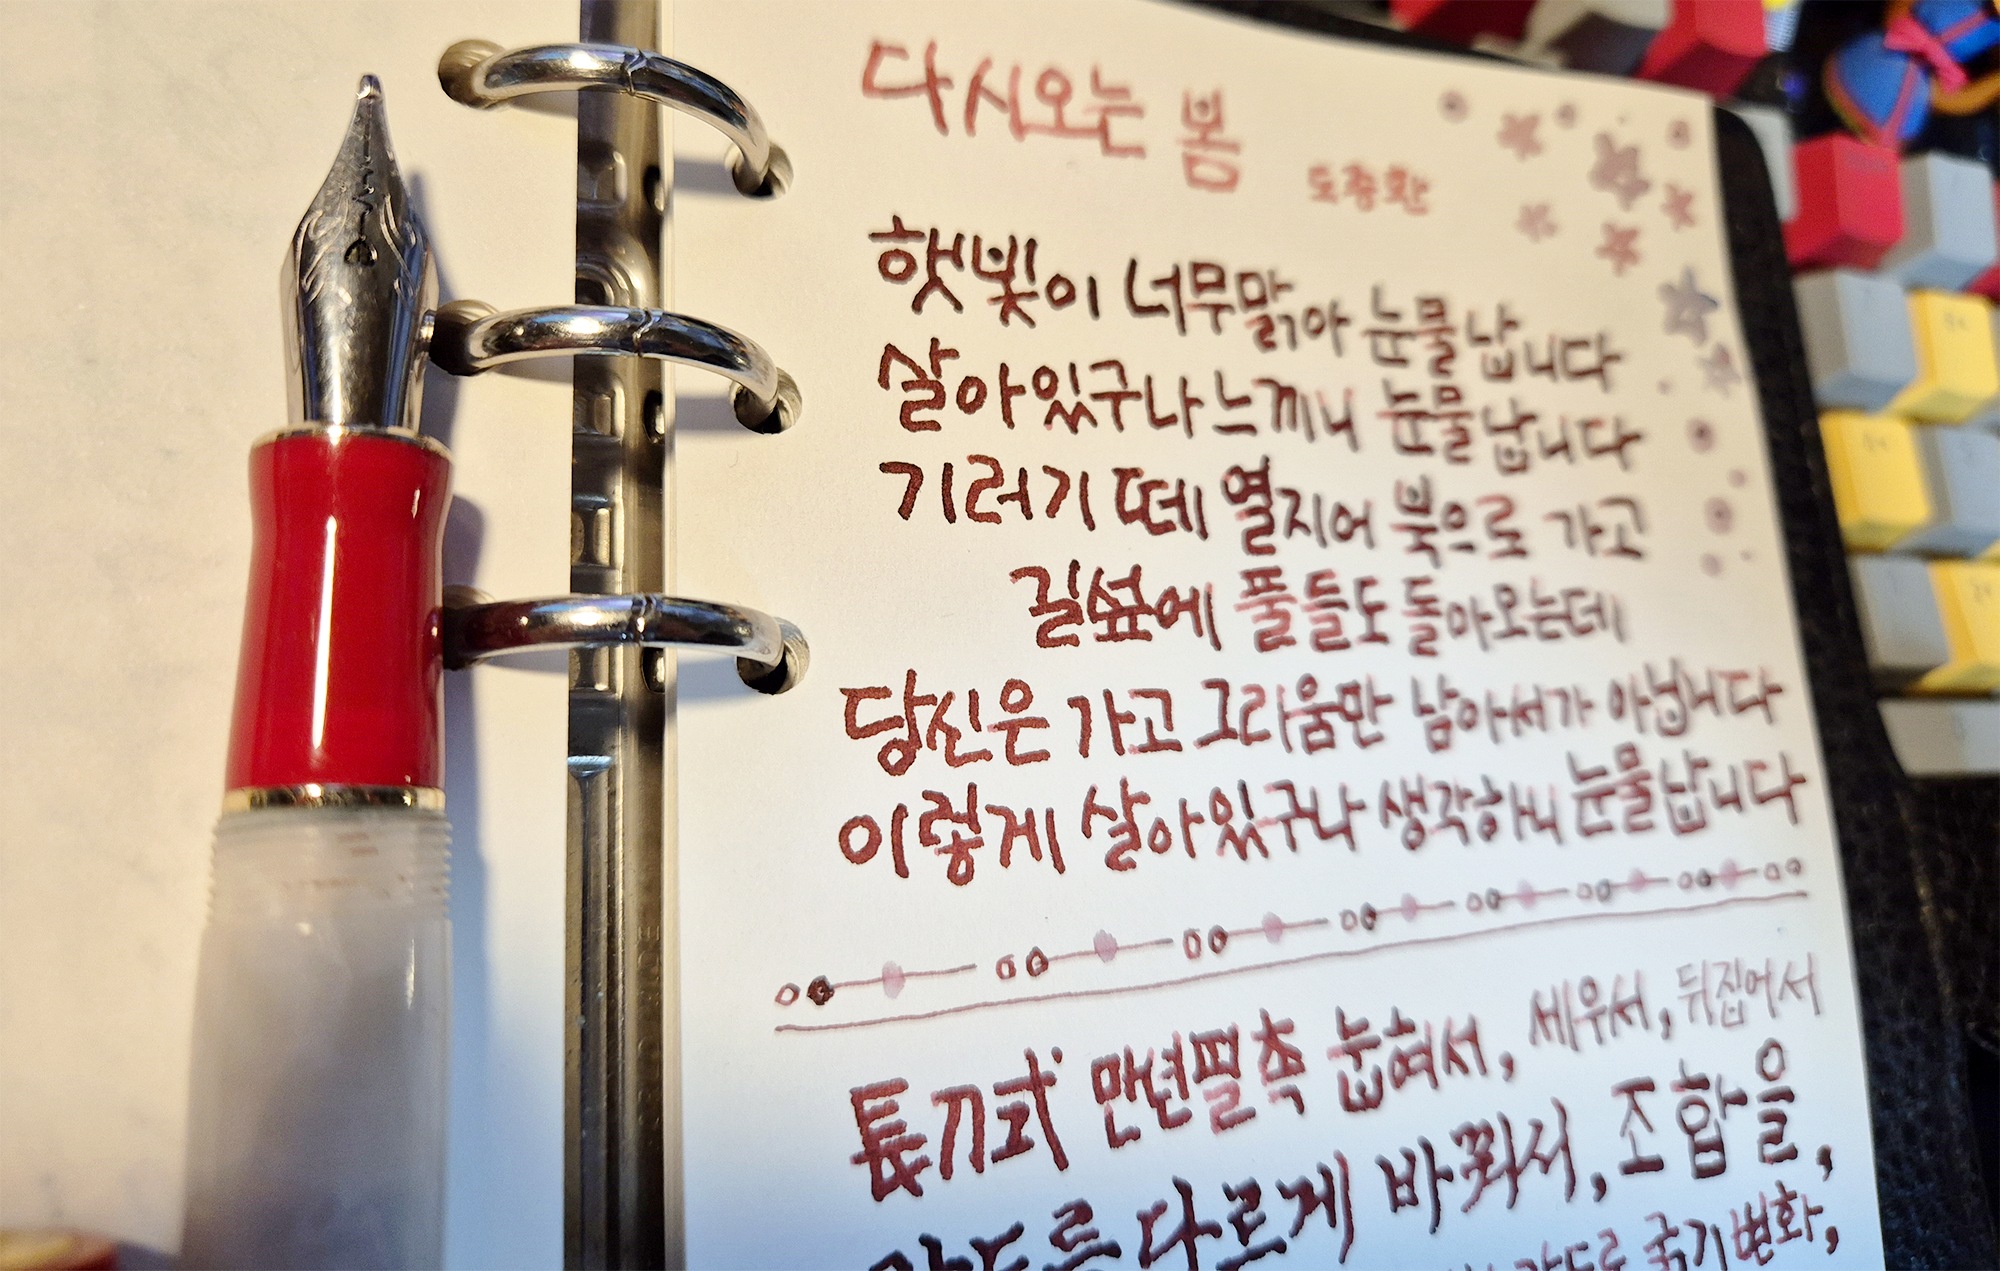 다시오는 봄
도종환
햇빛이 너무 맑아 눈물납니다
살아있구나 느끼니 눈물납니다
기러기 떼 열지어 북으로 가고
길섶에 풀들도 돌아오는데
당신은 가고 그리움만 남아서가 아닙니다
이렇게 살아있구나 생각하니 눈물납니다
長刀式 만년필촉 눕혀서, 세우서, 뒤집어서
각도를 다르게 바꿔서, 조합을,
각도로 굵기변화,